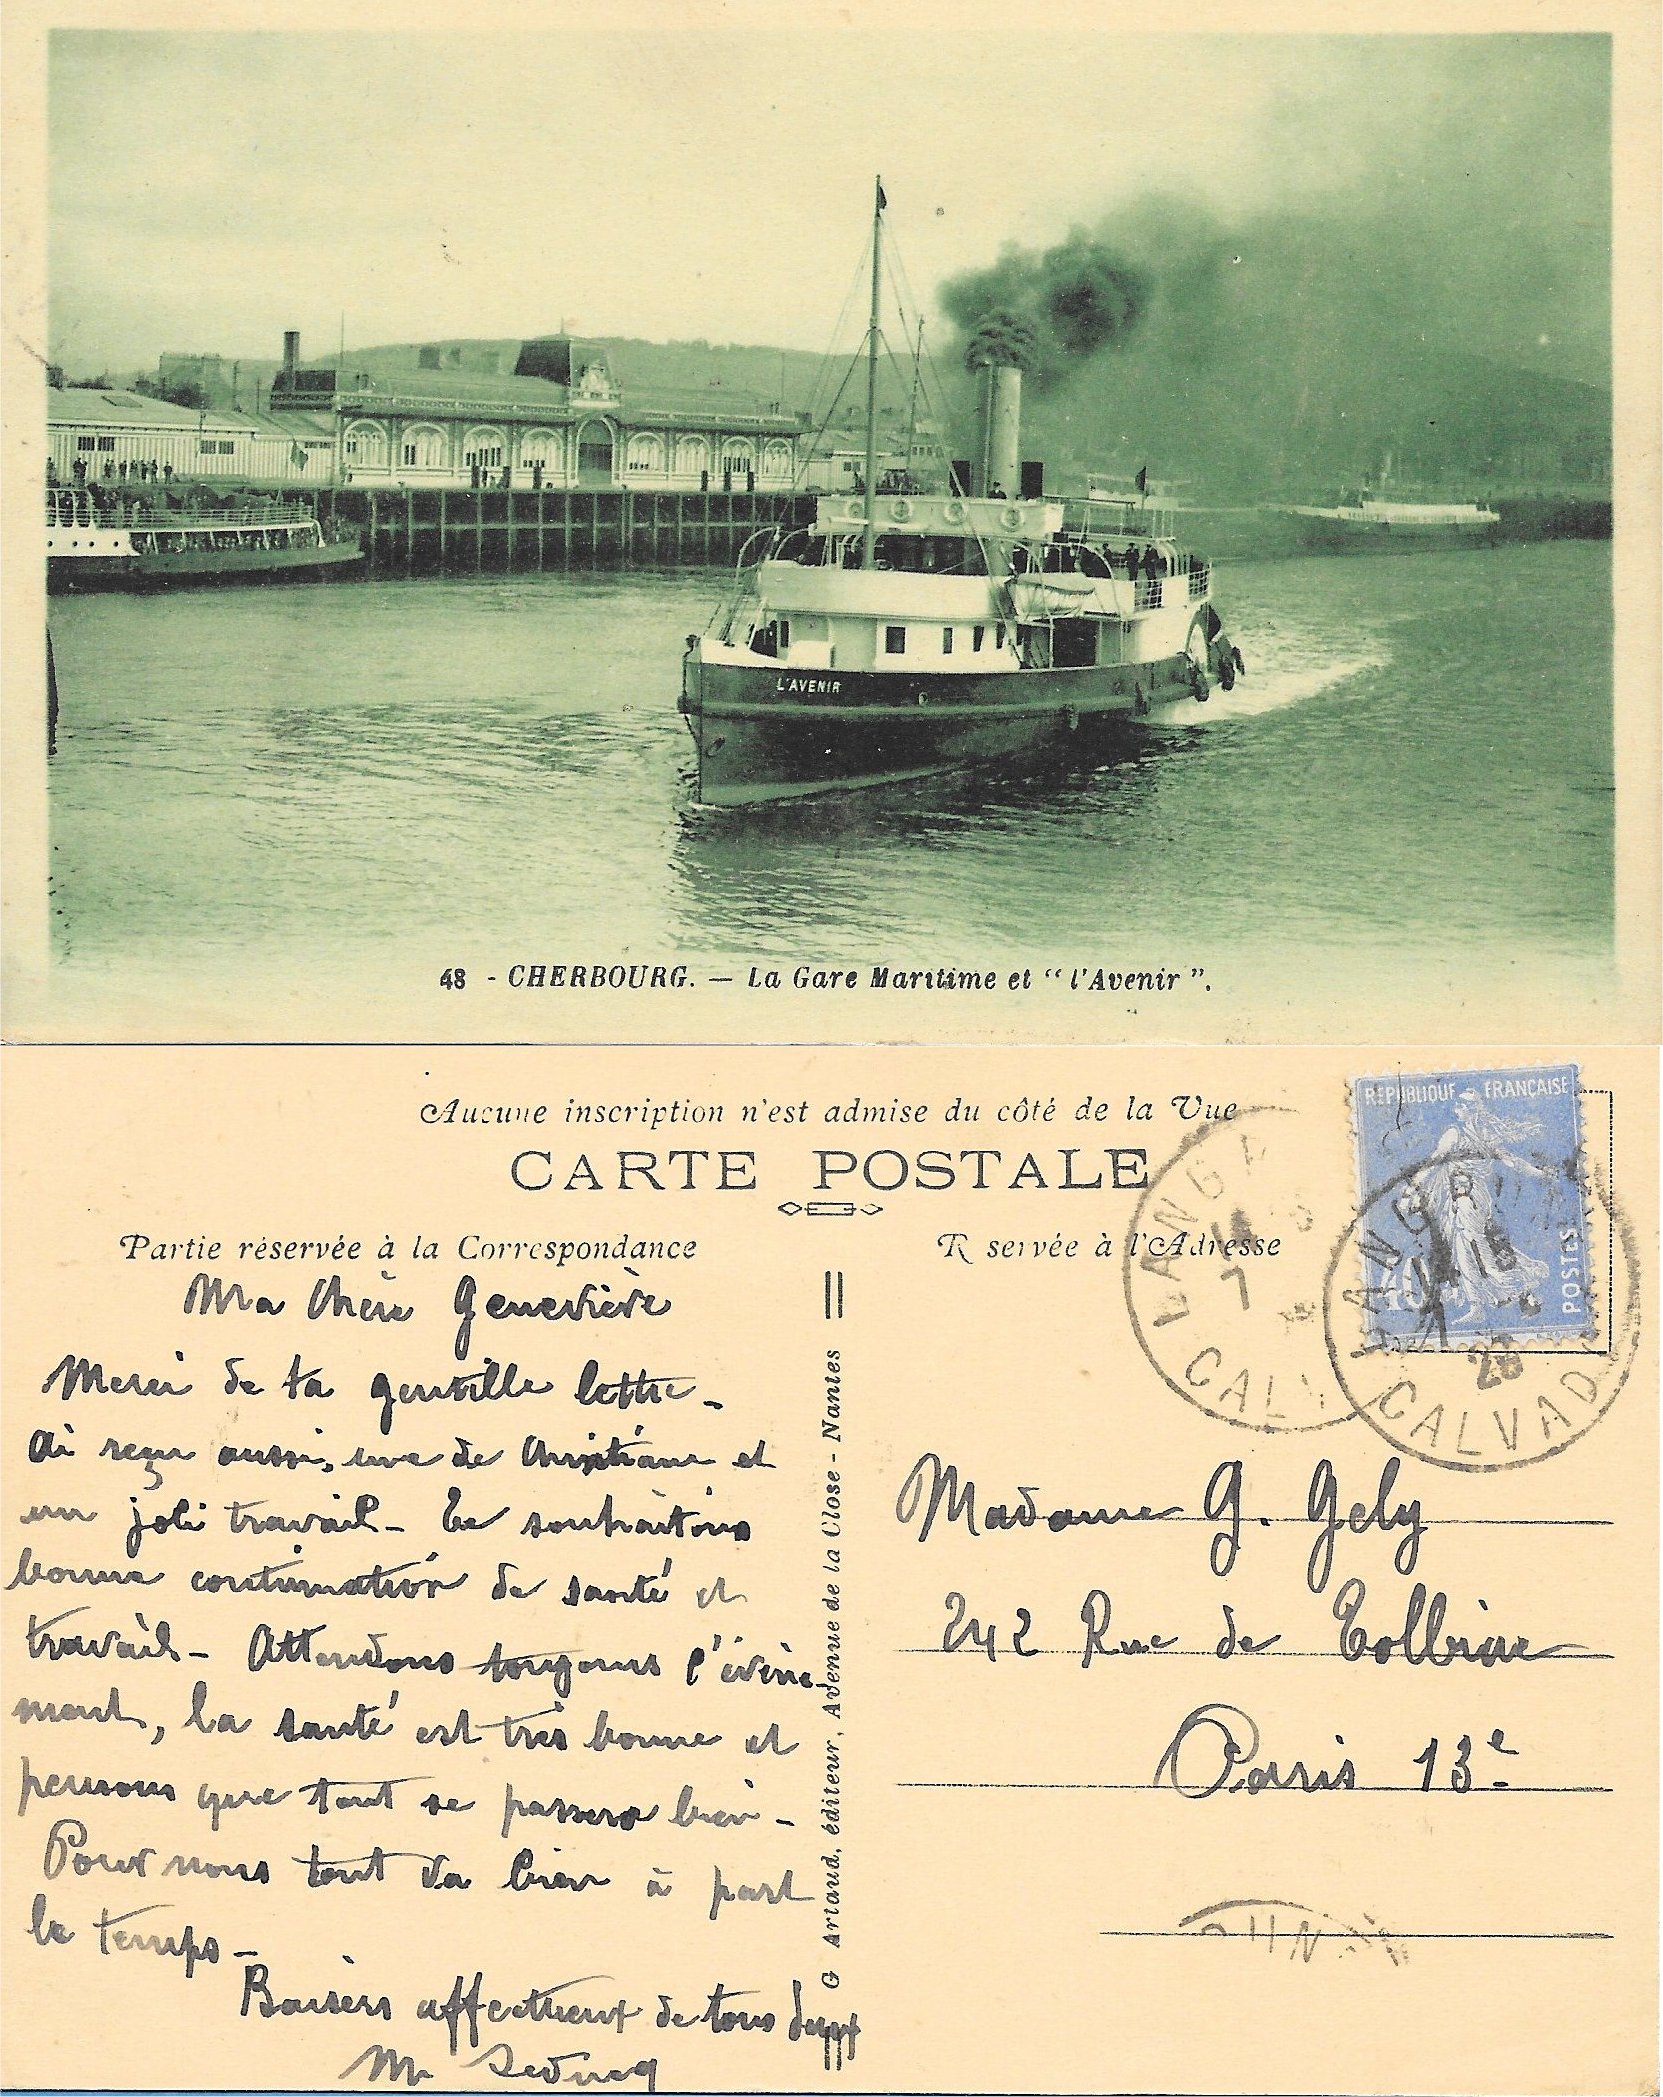 L'AVENIR
48 - CHERBOURG. — La Gare Maritime et “ l'Avenir ”.
Aucune inscription n'est admise du côté de la Vue
CARTE POSTALE
Partie réservée à la Correspondance
R servée à l'Adresse
REPUBLIQUE FRANÇAISE
POSTES
LANGR
CALV
LANGRUNE
14 15
7
28
CALVADOS
Ma Chère Geneviève
Merci de ta gentille lettre -
Ai reçu aussi, une de Christiane et
un joli travail - Te souhaitons
bonne continuation de santé et
travail - Attendons toujours l'évène-
ment, la santé est très bonne et
pensons que tout se passera bien -
Pour nous tout va bien à part
le temps -
Baisers affectueux de tous deux
M
G Artaud, éditeur, Avenue de la Close - Nantes
Madame G. Gely
242 Rue de Tolbiac
Paris 13e